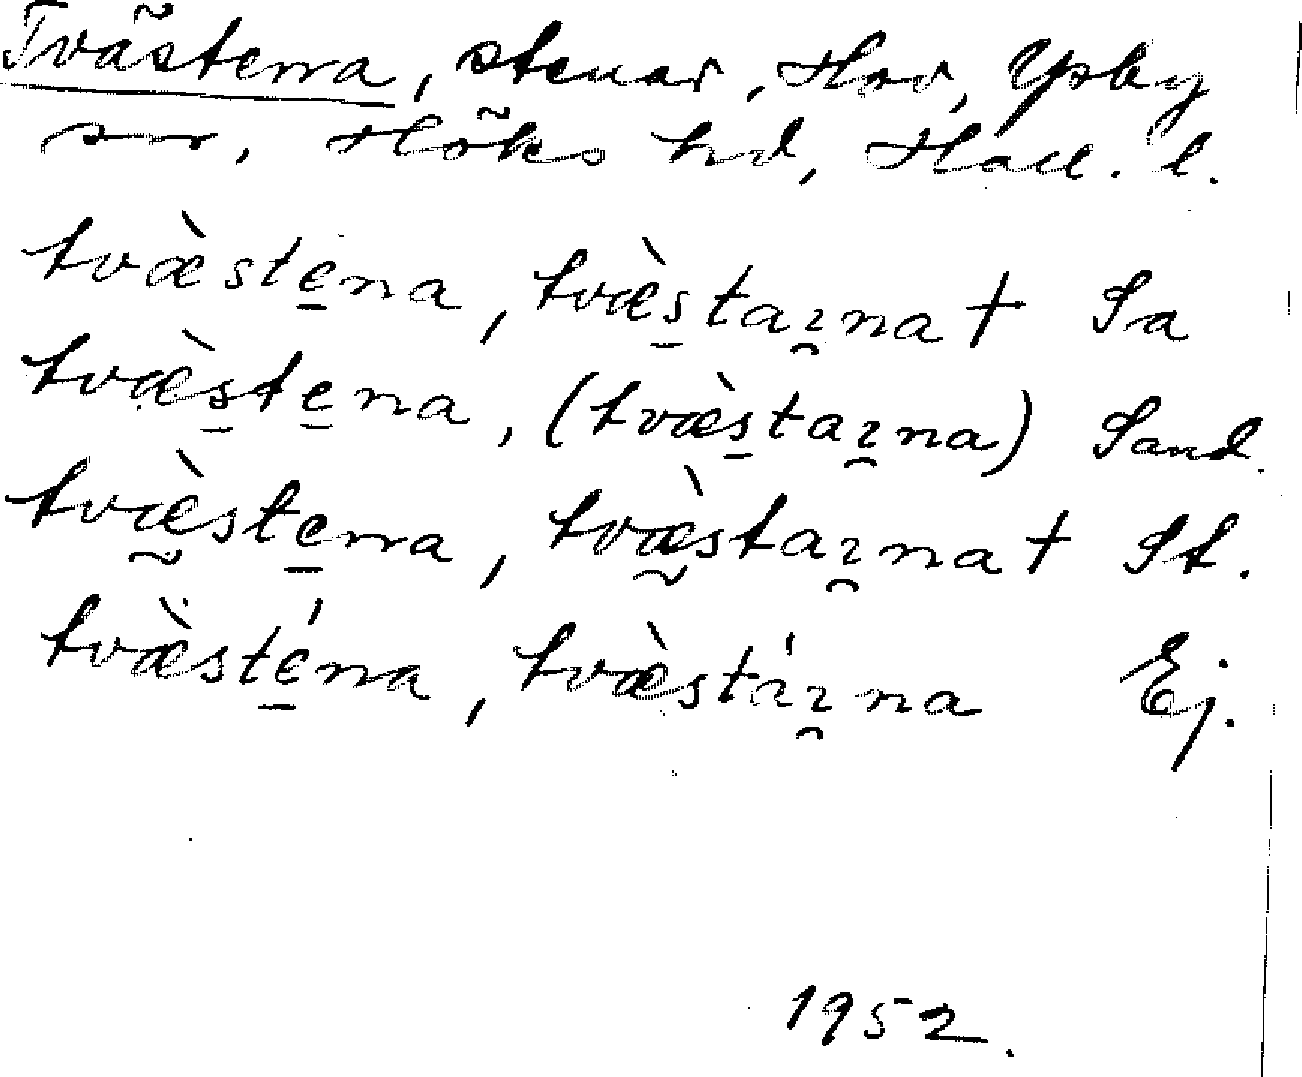 Tvästena, stenar, Hov, Ysby
sn, Höks hd, Hall. l.
tvæ̀ste̲na, tvæ̀s̲taɿ̯na † Sa
tvæ̀s̲te̲na, (tvæ̀s̲taɿ̯na) Sand.
tvæ̰̀ste̲na, tvæ̰̀staɿ̯na † St.
tvæ̀sté̲na, tvæ̀stáɿ̯na Ej.
1952.